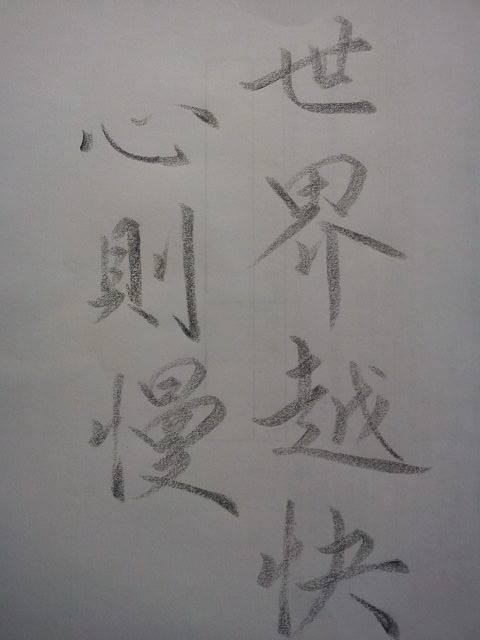 世界越快
心則慢